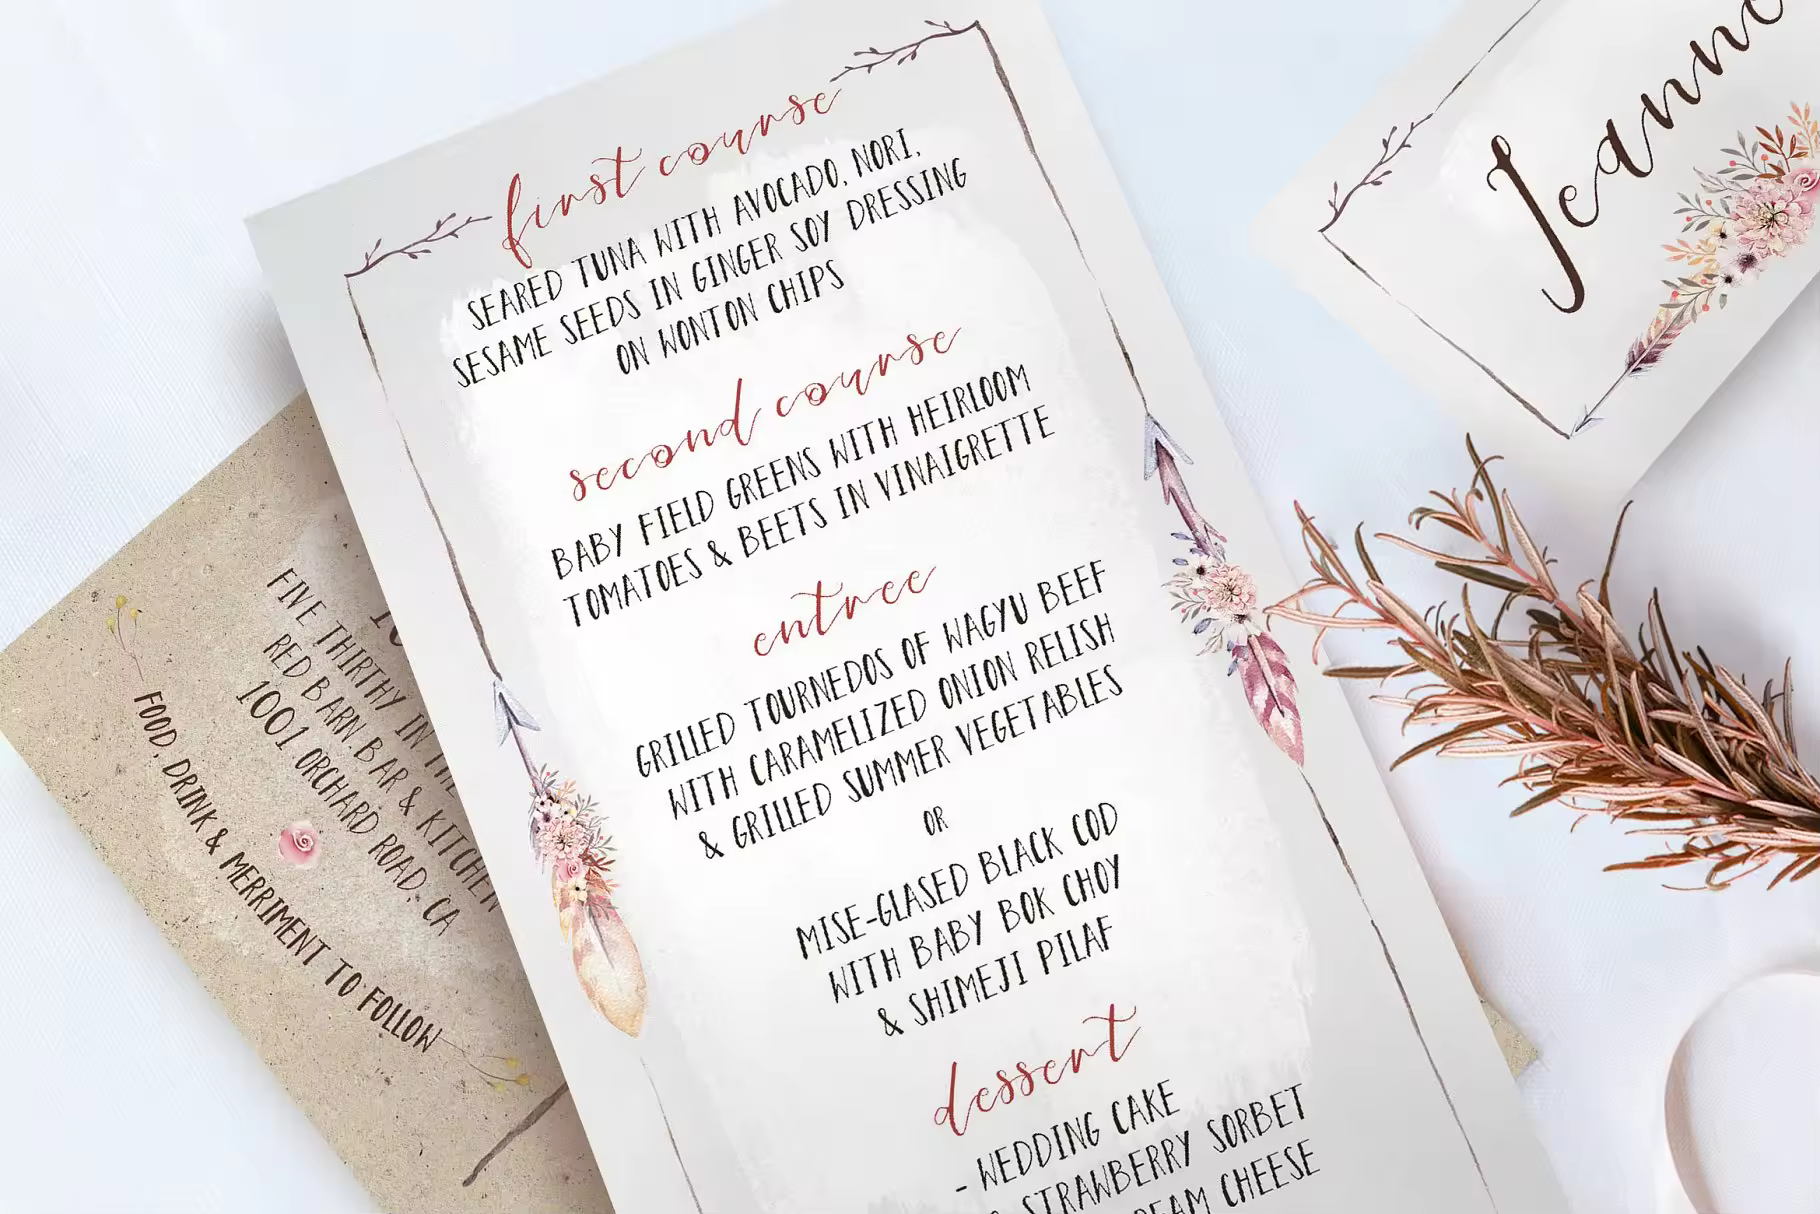 first course
SEARED TUNA WITH AVOCADO, NORI,
SESAME SEEDS IN GINGER SOY DRESSING
ON WONTON CHIPS
second course
BABY FIELD GREENS WITH HEIRLOOM
TOMATOES & BEETS IN VINAIGRETTE
entree
GRILLED TOURNEDOS OF WAGYU BEEF
WITH CARAMELIZED ONION RELISH
& GRILLED SUMMER VEGETABLES
OR
MISE-GLASED BLACK COD
WITH BABY BOK CHOY
& SHIMEJI PILAF
dessert
- WEDDING CAKE
STRAWBERRY SORBET
CHEESE
FIVE THIRTHY IN THE
RED BARN, BAR & KITCHEN
1001 ORCHARD ROAD, CA
FOOD, DRINK & MERRIMENT TO FOLLOW